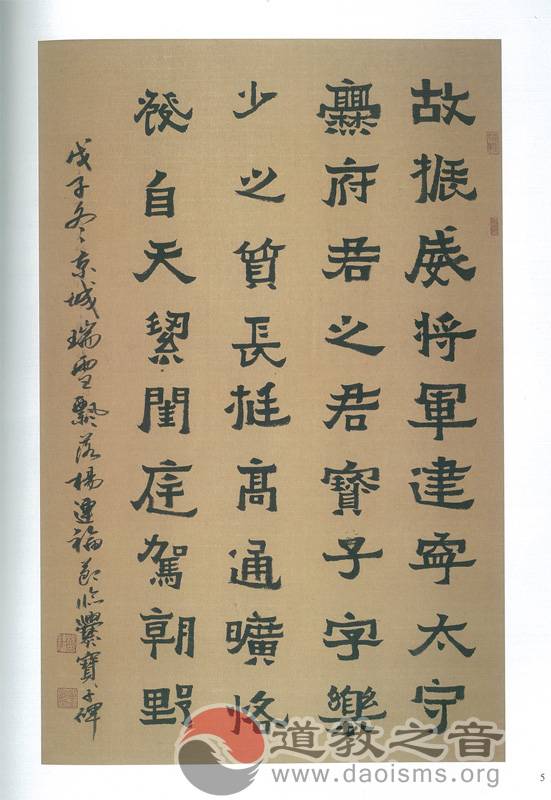 故振威将軍建寧太守
爨府君之君寶子字樂
少之質長挺高通曠恪
發自天絜閨庭駕朝野
戊子冬京城瑞雪飄落楊連福敬臨爨寶子碑
道教之音
www.daoisms.org
5